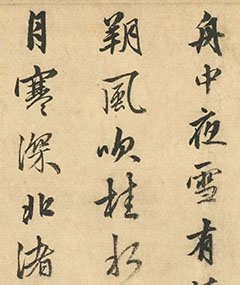 舟中夜雪有
朔風吹桂水
月寒深北渚